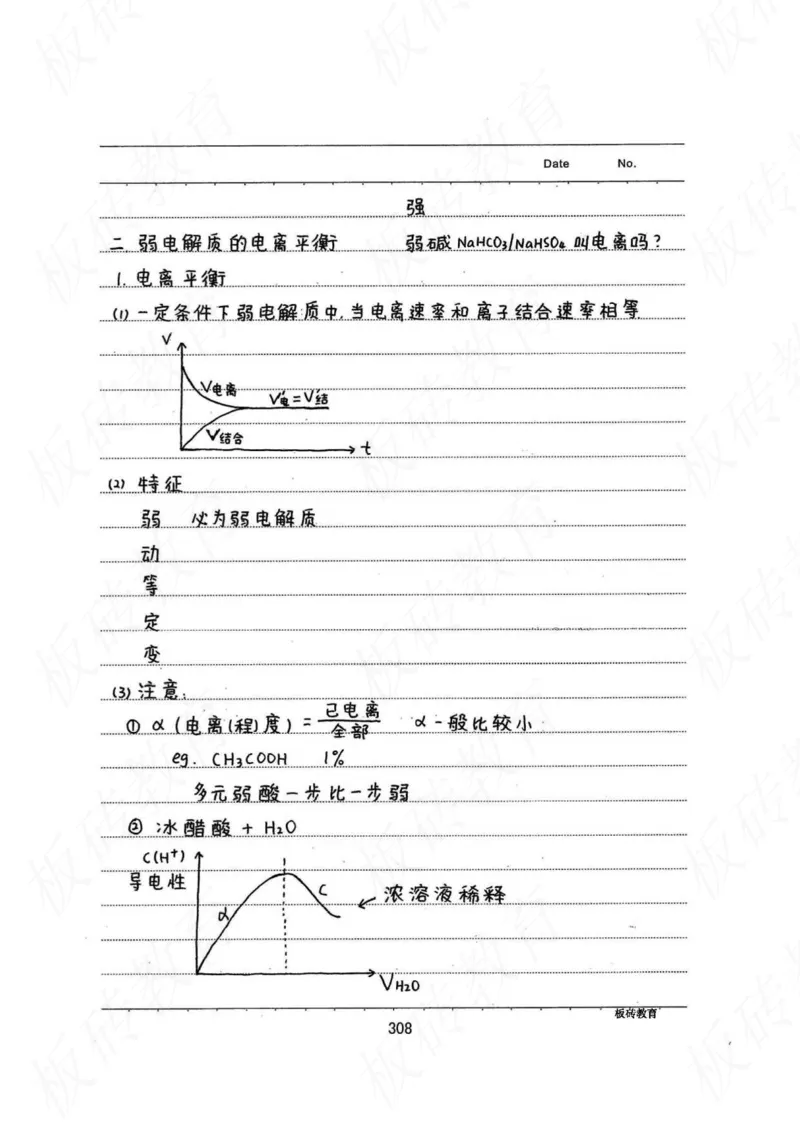 Date No.
强
二 弱电解质的电离平衡 弱碱 NaHCO₃/NaHSO₄ 叫电离吗?
1. 电离平衡
(1) 一定条件下弱电解质中,当电离速率和离子结合速率相等
V
V电离
V'电=V'结
V结合
t
(2) 特征
弱 必为弱电解质
动
等
定
变
(3) 注意:
① α(电离(程)度)= 已电离/全部 α一般比较小
eg. CH₃COOH 1%
多元弱酸一步比一步弱
② 冰醋酸 + H₂O
C(H⁺)
导电性
α
C
← 浓溶液稀释
VH₂O
板砖教育
308